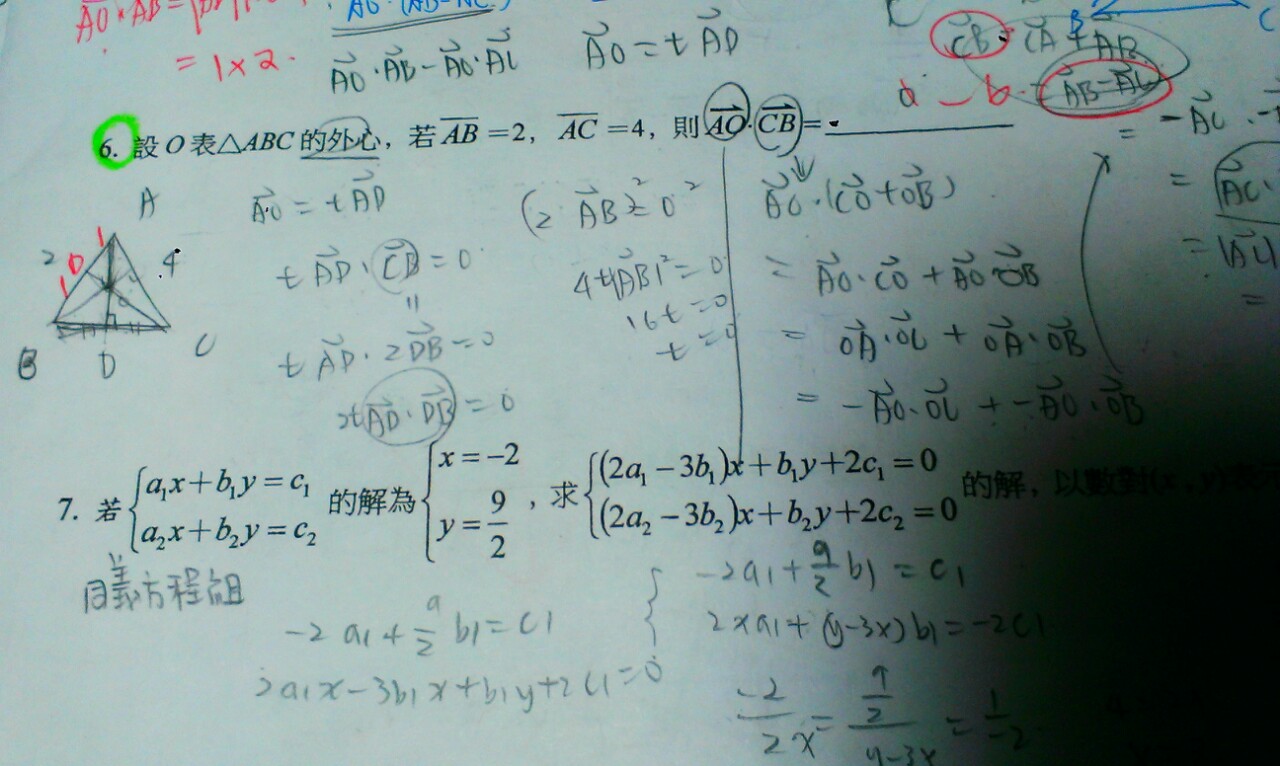 = 1×2.
AO·AB−AO·AC
AO = tAD
CB = CA + AB
AB−AC
6. 設O表△ABC的外心，若AB=2，AC=4，則AO·CB=
A
2
4
1
D
1
B
D
C
AO = tAD
tAD·CB = 0
tAD·2DB = 0
2tAD·DB = 0
4t|AB|²=0
16t=0
t=0
AO·(CO+OB)
= AO·CO + AO·OB
= OA·OC + OA·OB
= −AO·OC + −AO·OB
7. 若{a₁x+b₁y=c₁ a₂x+b₂y=c₂ 的解為{x=−2 y=9/2，求{(2a₁−3b₁)x+b₁y+2c₁=0 (2a₂−3b₂)x+b₂y+2c₂=0 的解，以數對(x,y)表示
同義方程組
−2a₁+9/2 b₁=c₁
2a₁x−3b₁x+b₁y+2c₁=0
−2a₁+9/2 b₁=c₁
2xa₁+(y−3x)b₁=−2c₁
−2/2x = (9/2)/(y−3x) = 1/−2